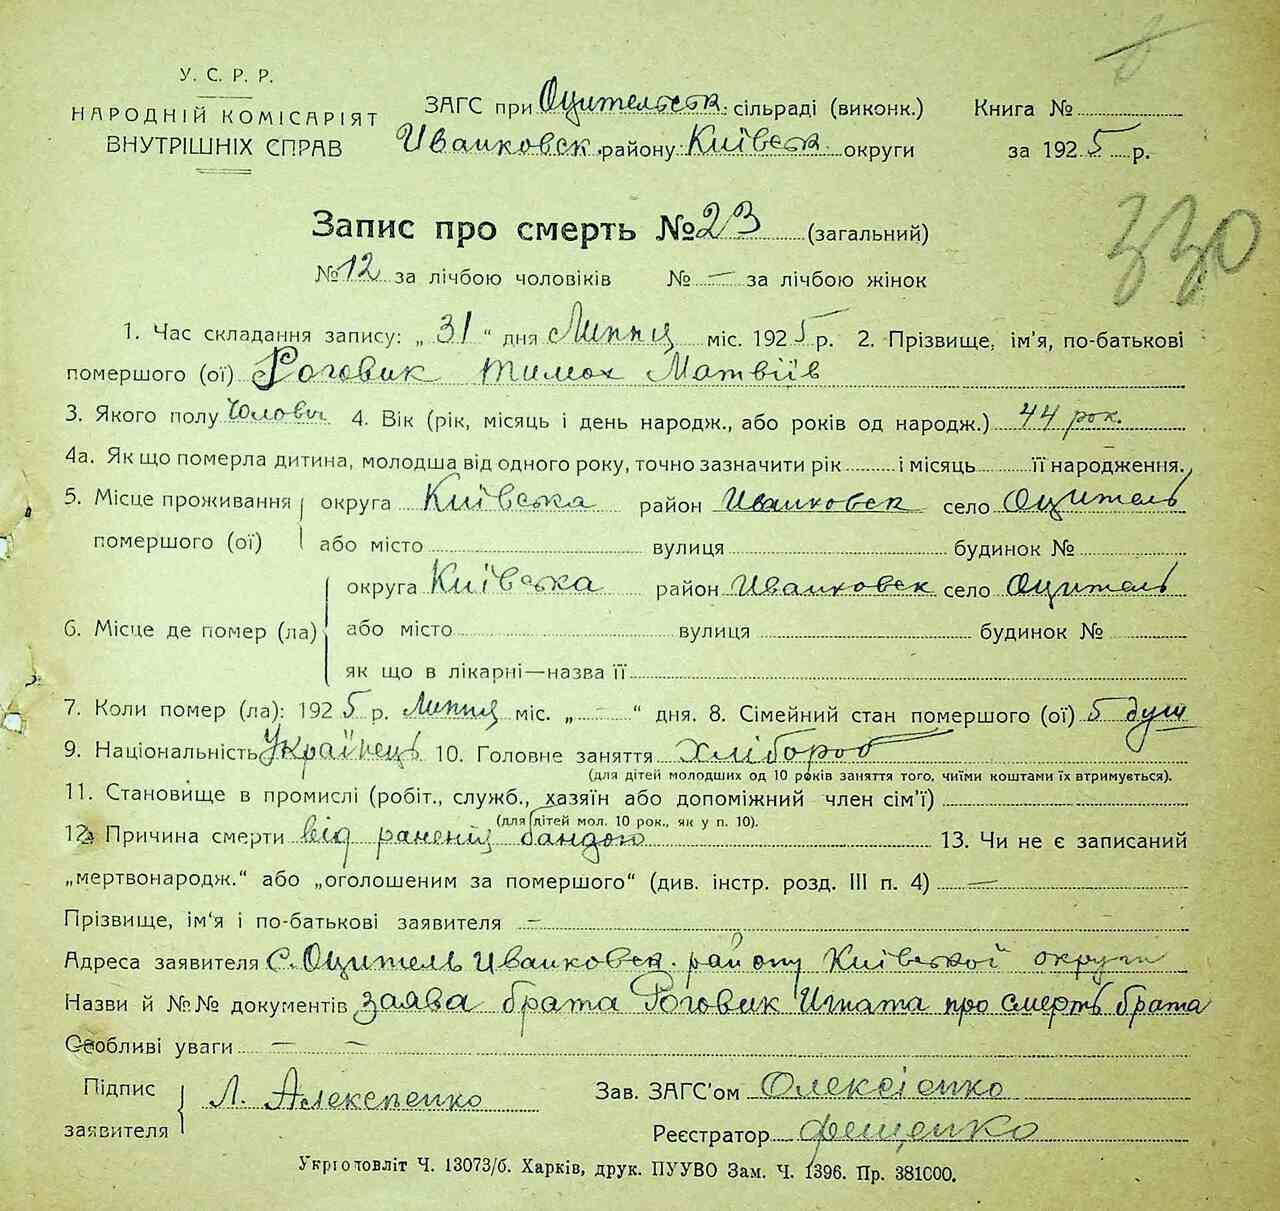 У. С. Р. Р.
НАРОДНІЙ КОМІСАРІЯТ
ВНУТРІШНІХ СПРАВ
ЗАГС при Оцительськ. сільраді (виконк.)
Иванковск. району Київськ. округи
Книга №
за 1925 р.
330
Запис про смерть № 23 (загальний)
№ 12 за лічбою чоловіків № — за лічбою жінок
1. Час складання запису: „ 31 “ дня Липця міс. 1925 р. 2. Прізвище, ім'я, по-батькові
помершого (ої) Роговик Тимох Матвіїв
3. Якого полу Чолові 4. Вік (рік, місяць і день народж., або років од народж.) 44 рок.
4а. Як що померла дитина, молодша від одного року, точно зазначити рік і місяць її народження.
5. Місце проживання округа Київська район Иванковск село Оцитель
помершого (ої) або місто вулиця будинок №
округа Київська район Иванковск село Оцитель
6. Місце де помер (ла) або місто вулиця будинок №
як що в лікарні—назва її
7. Коли помер (ла): 1925 р. Липця міс. „ — “ дня. 8. Сімейний стан помершого (ої) 5 душ
9. Національність Українець 10. Головне заняття Хлібороб
(для дітей молодших од 10 років заняття того, чиїми коштами їх втримується).
11. Становище в промислі (робіт., служб., хазяїн або допоміжний член сім'ї)
(для дітей мол. 10 рок., як у п. 10).
12. Причина смерти від раненія бандою 13. Чи не є записаний
„мертвонародж.“ або „оголошеним за помершого“ (див. інстр. розд. III п. 4) —
Прізвище, ім'я і по-батькові заявителя —
Адреса заявителя с. Оцитель Иванковск. району Київської округи
Назви й №№ документів заява брата Роговик Игната про смерть брата
Особливі уваги — —
Підпис
заявителя Л. Алексеенко
Зав. ЗАГС'ом Олексієнко
Реєстратор Фещенко
Укрголовліт Ч. 13073/б. Харків, друк. ПУУВО Зам. Ч. 1396. Пр. 381000.